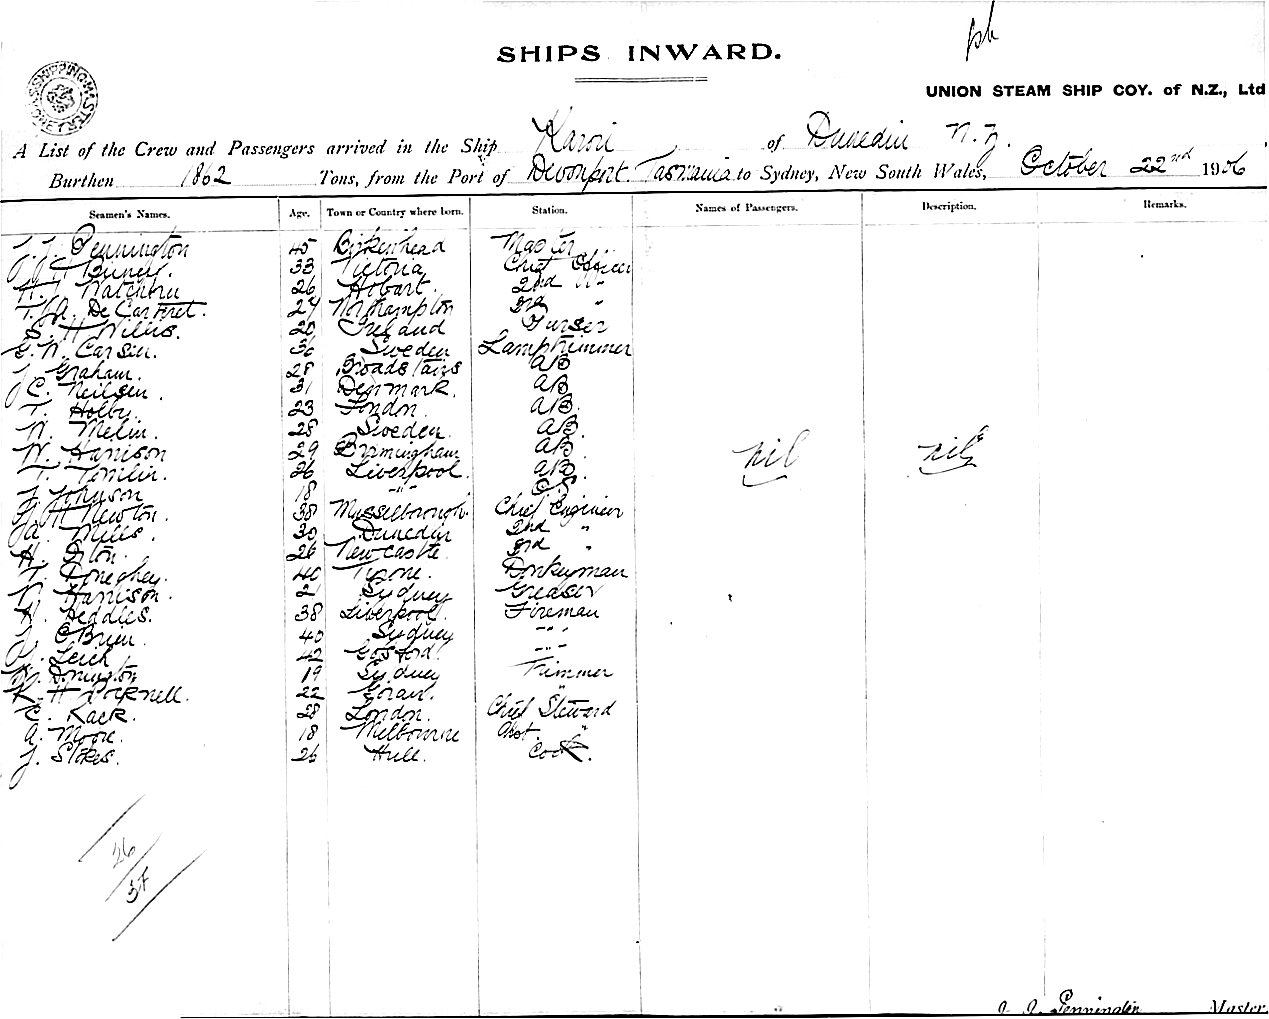 SHIPS INWARD.
UNION STEAM SHIP COY. of N.Z., Ltd
A List of the Crew and Passengers arrived in the Ship Karori of Dunedin N.Z.
Burthen 1862 Tons, from the Port of Devonport. Tasmania to Sydney, New South Wales, October 22nd 1906
Seamen's Names. Age. Town or Country where born. Station. Names of Passengers. Description. Remarks.
J. J. Pennington 45 Birkenhead Master
33 Victoria Chief Officer
26 Hobart. 2nd "
T. A. De Carteret. 27 Northampton 3rd "
S. H. Willis. 20 Ireland Purser
36 Sweden Lamptrimmer
J. Graham. 28 Broadstairs AB
J C. Neilsen. 31 Denmark. AB
T. Holby. 23 London. AB.
W. Melin. 28 Sweden. AB.
W. Harrison 29 Birmingham AB. nil nil
T. Tomlin. 26 Liverpool. AB.
J. Johnson 18 " OS
H Newton. 38 Musselborough. Chief Engineer
A. Mills. 30 Dunedin 2nd "
H. 26 Newcastle 3rd "
40 Tyrone. Donkeyman
Harrison. 21 Sydney Greaser
Heddles. 38 Liverpool. Fireman
J. O'Brien. 40 Sydney "
Leich 42 Gosford. "
19 Sydney Trimmer
R. H. 22 "
C. Rack. 28 London. Chief Steward
A. Moore. 18 Melbourne Asst. "
J. Stokes. 26 Hull. Cook.
26
37
J. J. Pennington Master.